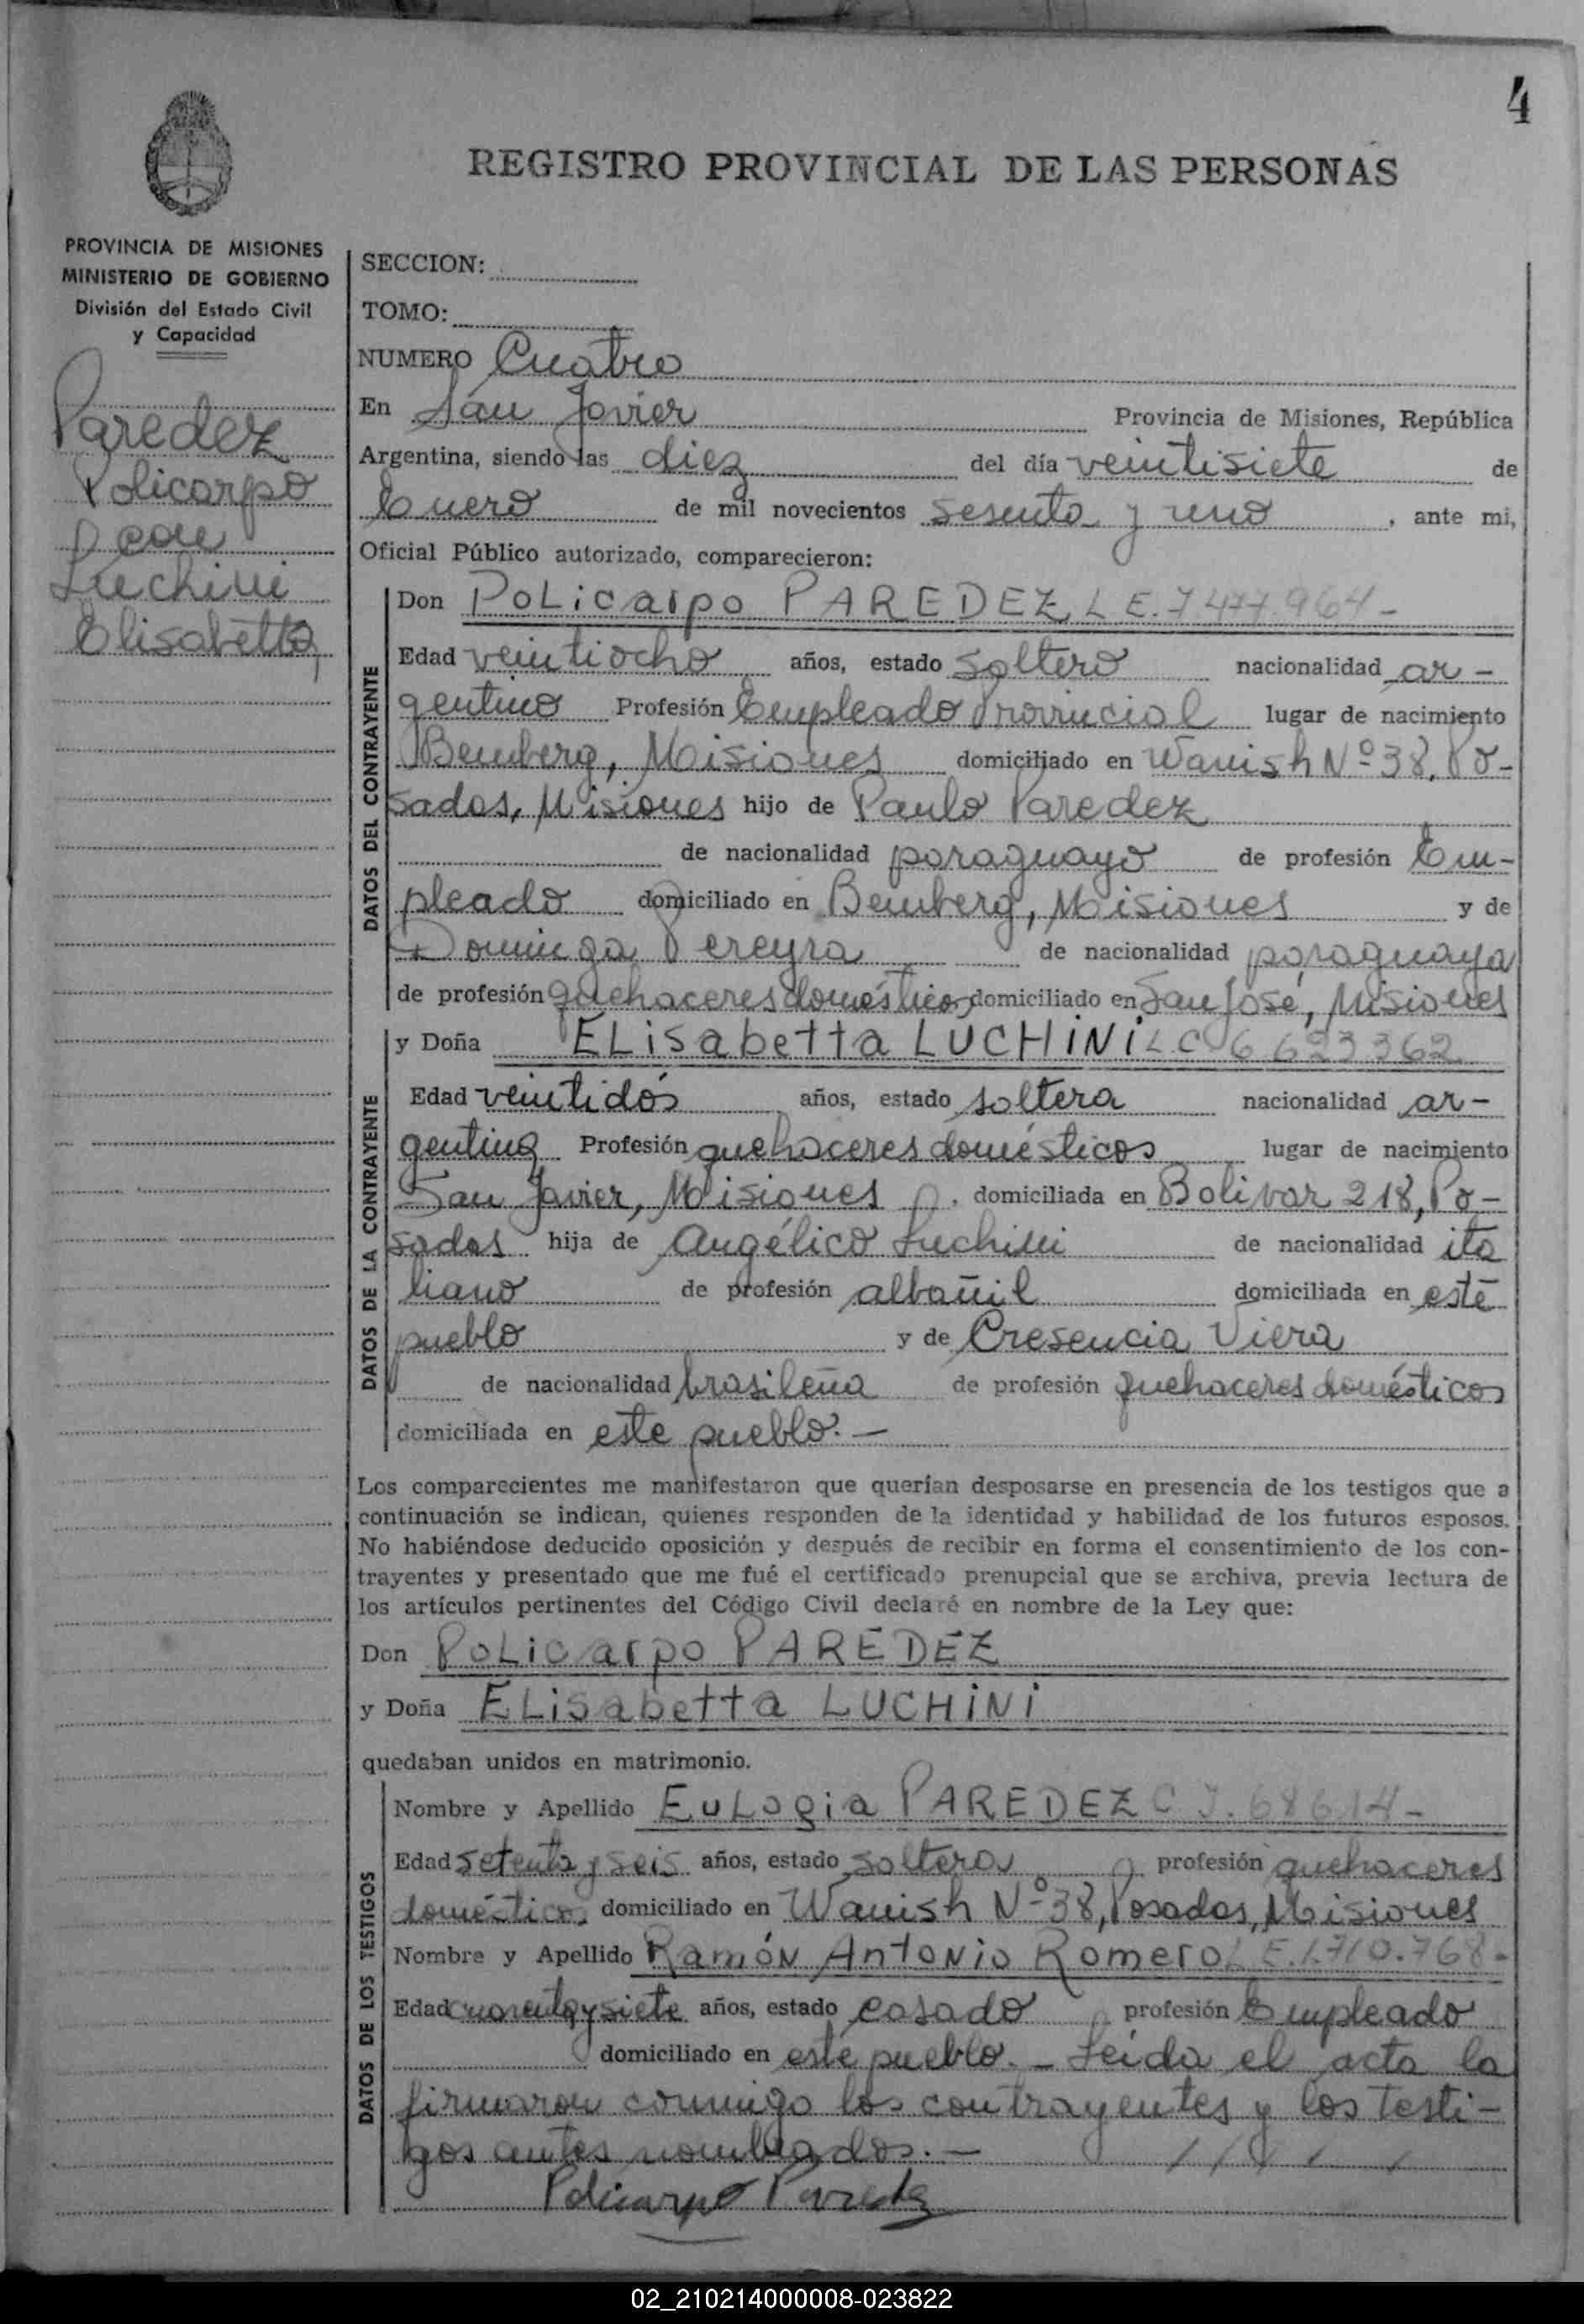 4
REGISTRO PROVINCIAL DE LAS PERSONAS
PROVINCIA DE MISIONES
MINISTERIO DE GOBIERNO
División del Estado Civil
y Capacidad
Paredez
Policarpo
con
Luchini
Elisabetta
SECCION:
TOMO:
NUMERO Cuatro
En San Javier Provincia de Misiones, República
Argentina, siendo las diez del día veintisiete de
Enero de mil novecientos sesenta y uno, ante mi,
Oficial Público autorizado, comparecieron:
DATOS DEL CONTRAYENTE
Don Policarpo PAREDEZ, L E. 7.477.964-
Edad veintiocho años, estado soltero nacionalidad ar-
gentino Profesión Empleado Provincial lugar de nacimiento
Bemberg, Misiones domiciliado en Wanish Nº 38, Po-
sadas, Misiones hijo de Paulo Paredez
de nacionalidad paraguayo de profesión Em-
pleado domiciliado en Bemberg, Misiones y de
Dominga Pereyra de nacionalidad paraguaya
de profesión quehaceres domésticos domiciliado en San José, Misiones
DATOS DE LA CONTRAYENTE
y Doña ELisabetta LUCHINI L C 6 623 362
Edad veintidós años, estado soltera nacionalidad ar-
gentina Profesión quehaceres domésticos lugar de nacimiento
San Javier, Misiones, domiciliada en Bolivar 218, Po-
sadas hija de Angélico Luchini de nacionalidad ita
liano de profesión albañil domiciliada en este
pueblo y de Cresencia Viera
de nacionalidad brasileña de profesión quehaceres domésticos
domiciliada en este pueblo.-
Los comparecientes me manifestaron que querían desposarse en presencia de los testigos que a
continuación se indican, quienes responden de la identidad y habilidad de los futuros esposos.
No habiéndose deducido oposición y después de recibir en forma el consentimiento de los con-
trayentes y presentado que me fué el certificado prenupcial que se archiva, previa lectura de
los artículos pertinentes del Código Civil declaré en nombre de la Ley que:
Don Policarpo PAREDEZ
y Doña ELisabetta LUCHINI
quedaban unidos en matrimonio.
DATOS DE LOS TESTIGOS
Nombre y Apellido EuLogia PAREDEZ C I. 68614-
Edad setenta y seis años, estado soltera profesión quehaceres
domésticos domiciliado en Wanish Nº 38, Posadas, Misiones
Nombre y Apellido Ramón Antonio Romero L E. 1.710.768-
Edad cuarenta y siete años, estado casado profesión Empleado
domiciliado en este pueblo.- Leída el acta la
firmaron conmigo los contrayentes y los testi-
gos antes nombrados.-
Policarpo Paredez
02_210214000008-023822